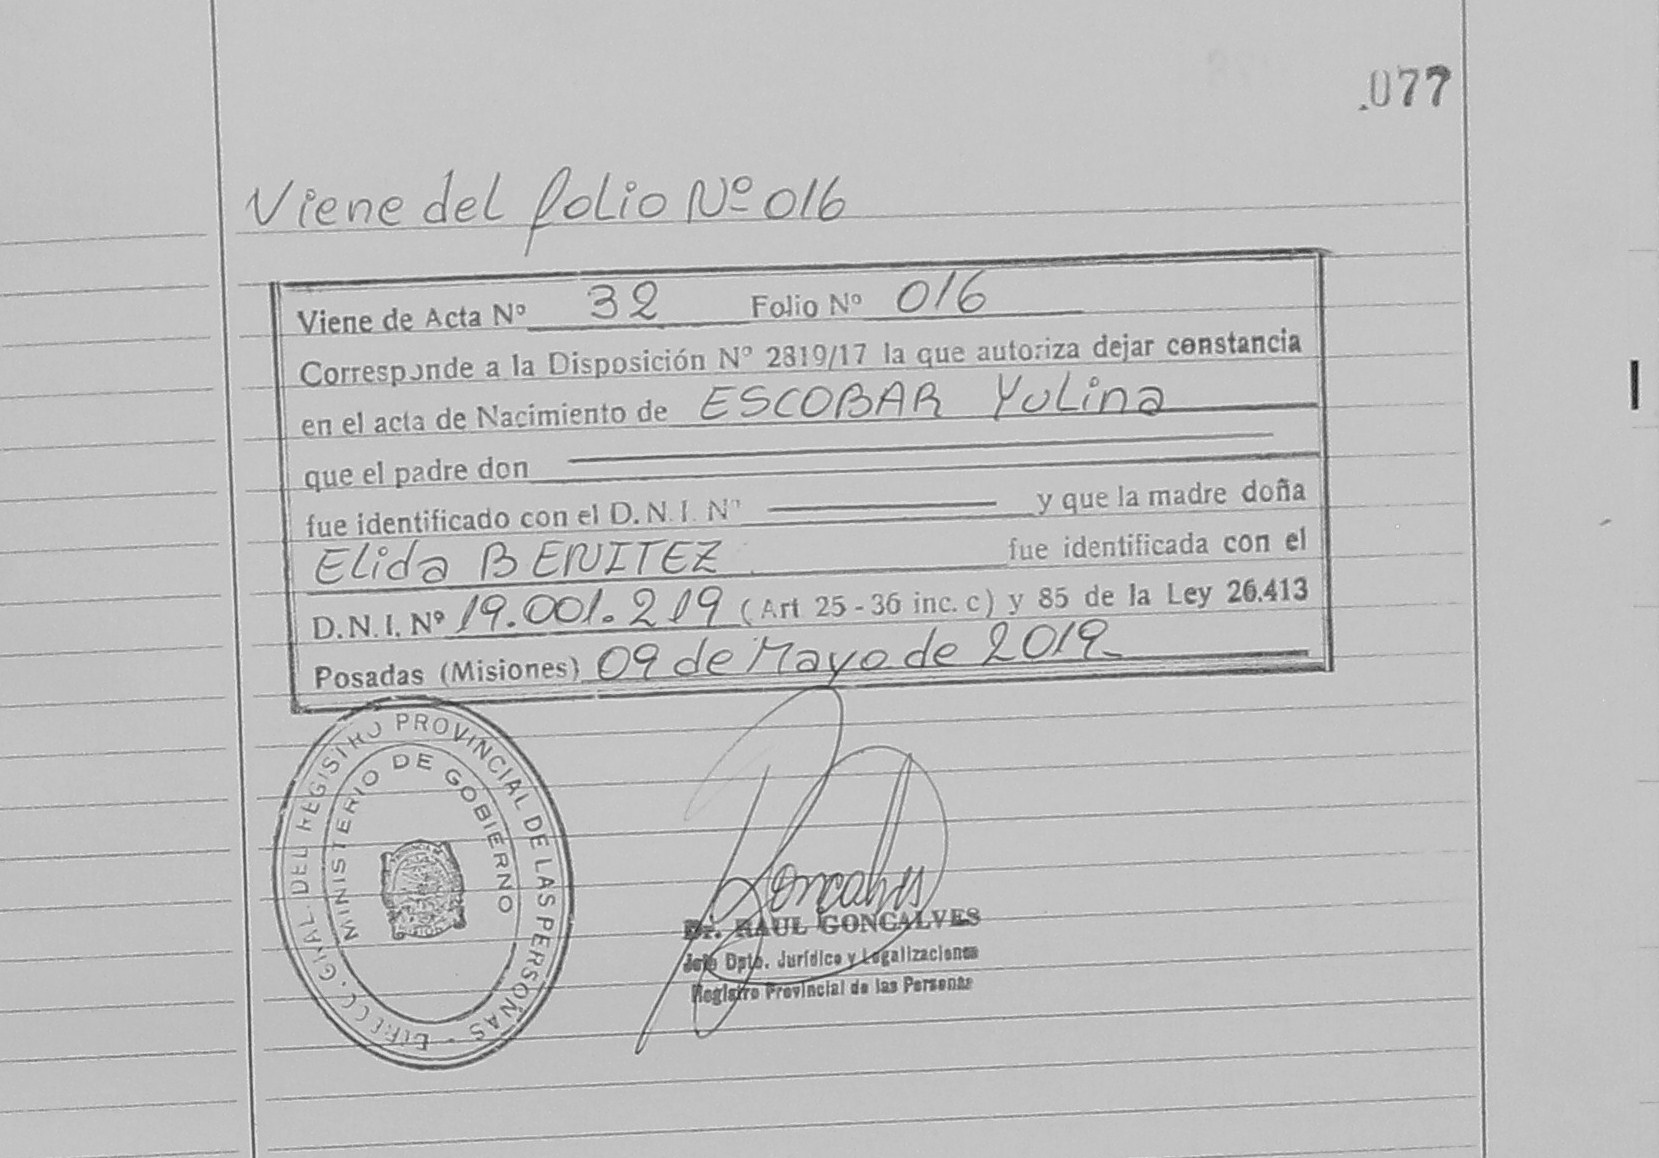 .077
Viene del folio Nº 016
Viene de Acta Nº 32 Folio Nº 016
Corresponde a la Disposición Nº 2819/17 la que autoriza dejar constancia
en el acta de Nacimiento de ESCOBAR Yulina
que el padre don
fue identificado con el D.N.I. Nº y que la madre doña
Elida BENITEZ fue identificada con el
D.N.I. Nº 19.001.219 (Art 25-36 inc. c) y 85 de la Ley 26.413
Posadas (Misiones) 09 de Mayo de 2019.
DIRECC. GRAL. DEL REGISTRO PROVINCIAL DE LAS PERSONAS -
MINISTERIO DE GOBIERNO
Goncalves
Dr. RAUL GONCALVES
Jefe Dpto. Jurídico y Legalizaciones
Registro Provincial de las Personas